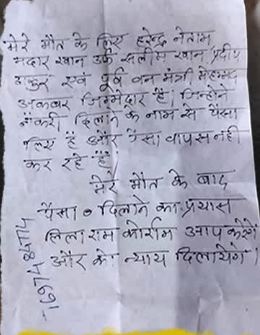 मेरे मौत के लिए हरेन्द्र नेताम
मदार खान उर्फ सलीम खान, प्रदीप
ठाकुर एवं पूर्व वन मंत्री मोहम्मद
अकबर जिम्मेदार हैं। जिन्होंने
नौकरी दिलाने के नाम से पैसा
लिए हैं और पैसा वापस नहीं
कर रहे हैं
मेरे मौत के बाद
पैसा दिलाने का प्रयास
आप करेंगे
और न्याय दिलायेंगे।